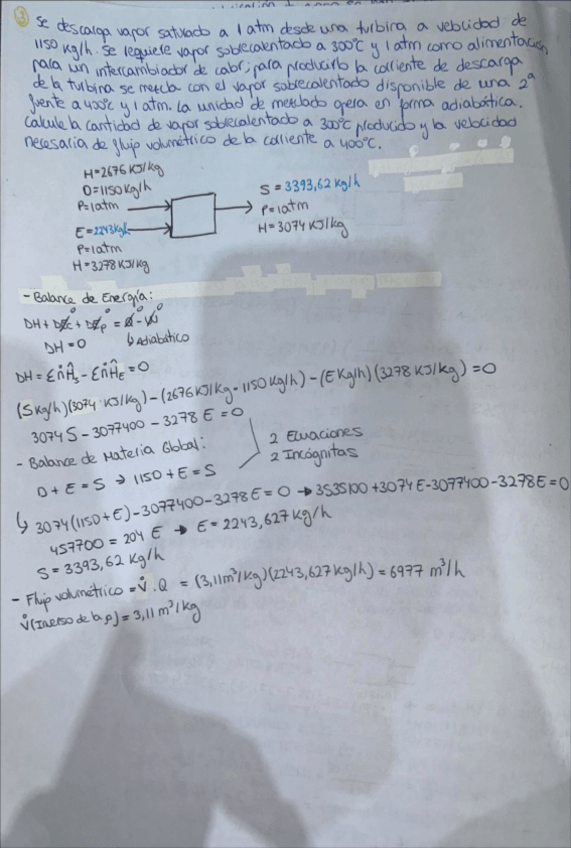 ③ Se descarga vapor saturado a 1 atm desde una turbina a velocidad de
1150 kg/h. Se requiere vapor sobrecalentado a 300°C y 1 atm como alimentación
para un intercambiador de calor; para producirlo la corriente de descarga
de la turbina se mezcla con el vapor sobrecalentado disponible de una 2ª
fuente a 400°C y 1 atm. La unidad de mezclado opera en forma adiabática.
Calcule la cantidad de vapor sobrecalentado a 300°C producido y la velocidad
necesaria de flujo volumétrico de la corriente a 400°C.
H=2676 KJ/kg
D=1150 Kg/h
P=1atm
E=2243Kg/h
P=1atm
H=3278 KJ/Kg
S = 3393,62 Kg/h
P=1atm
H=3074 KJ/kg
- Balance de Energía:
DH + DEc⁰ + DEp⁰ = Q⁰ - W⁰
DH=0 ↳ Adiabático
DH = Σṅ Ĥs - Σṅ ĤE = 0
(S Kg/h)(3074 KJ/Kg) - (2676 KJ/Kg · 1150 Kg/h) - (E Kg/h)(3278 KJ/Kg) = 0
3074 S - 3077400 - 3278 E = 0
- Balance de Materia Global:
D + E = S → 1150 + E = S
2 Ecuaciones
2 Incógnitas
↳ 3074(1150+E) - 3077400 - 3278E = 0 → 3535100 + 3074E - 3077400 - 3278E = 0
457700 = 204 E → E = 2243,627 Kg/h
S = 3393,62 Kg/h
- Flujo volumétrico = V̇ . Q = (3,11 m³/Kg)(2243,627 Kg/h) = 6977 m³/h
V̇ (Inverso de la ρ) = 3,11 m³/Kg